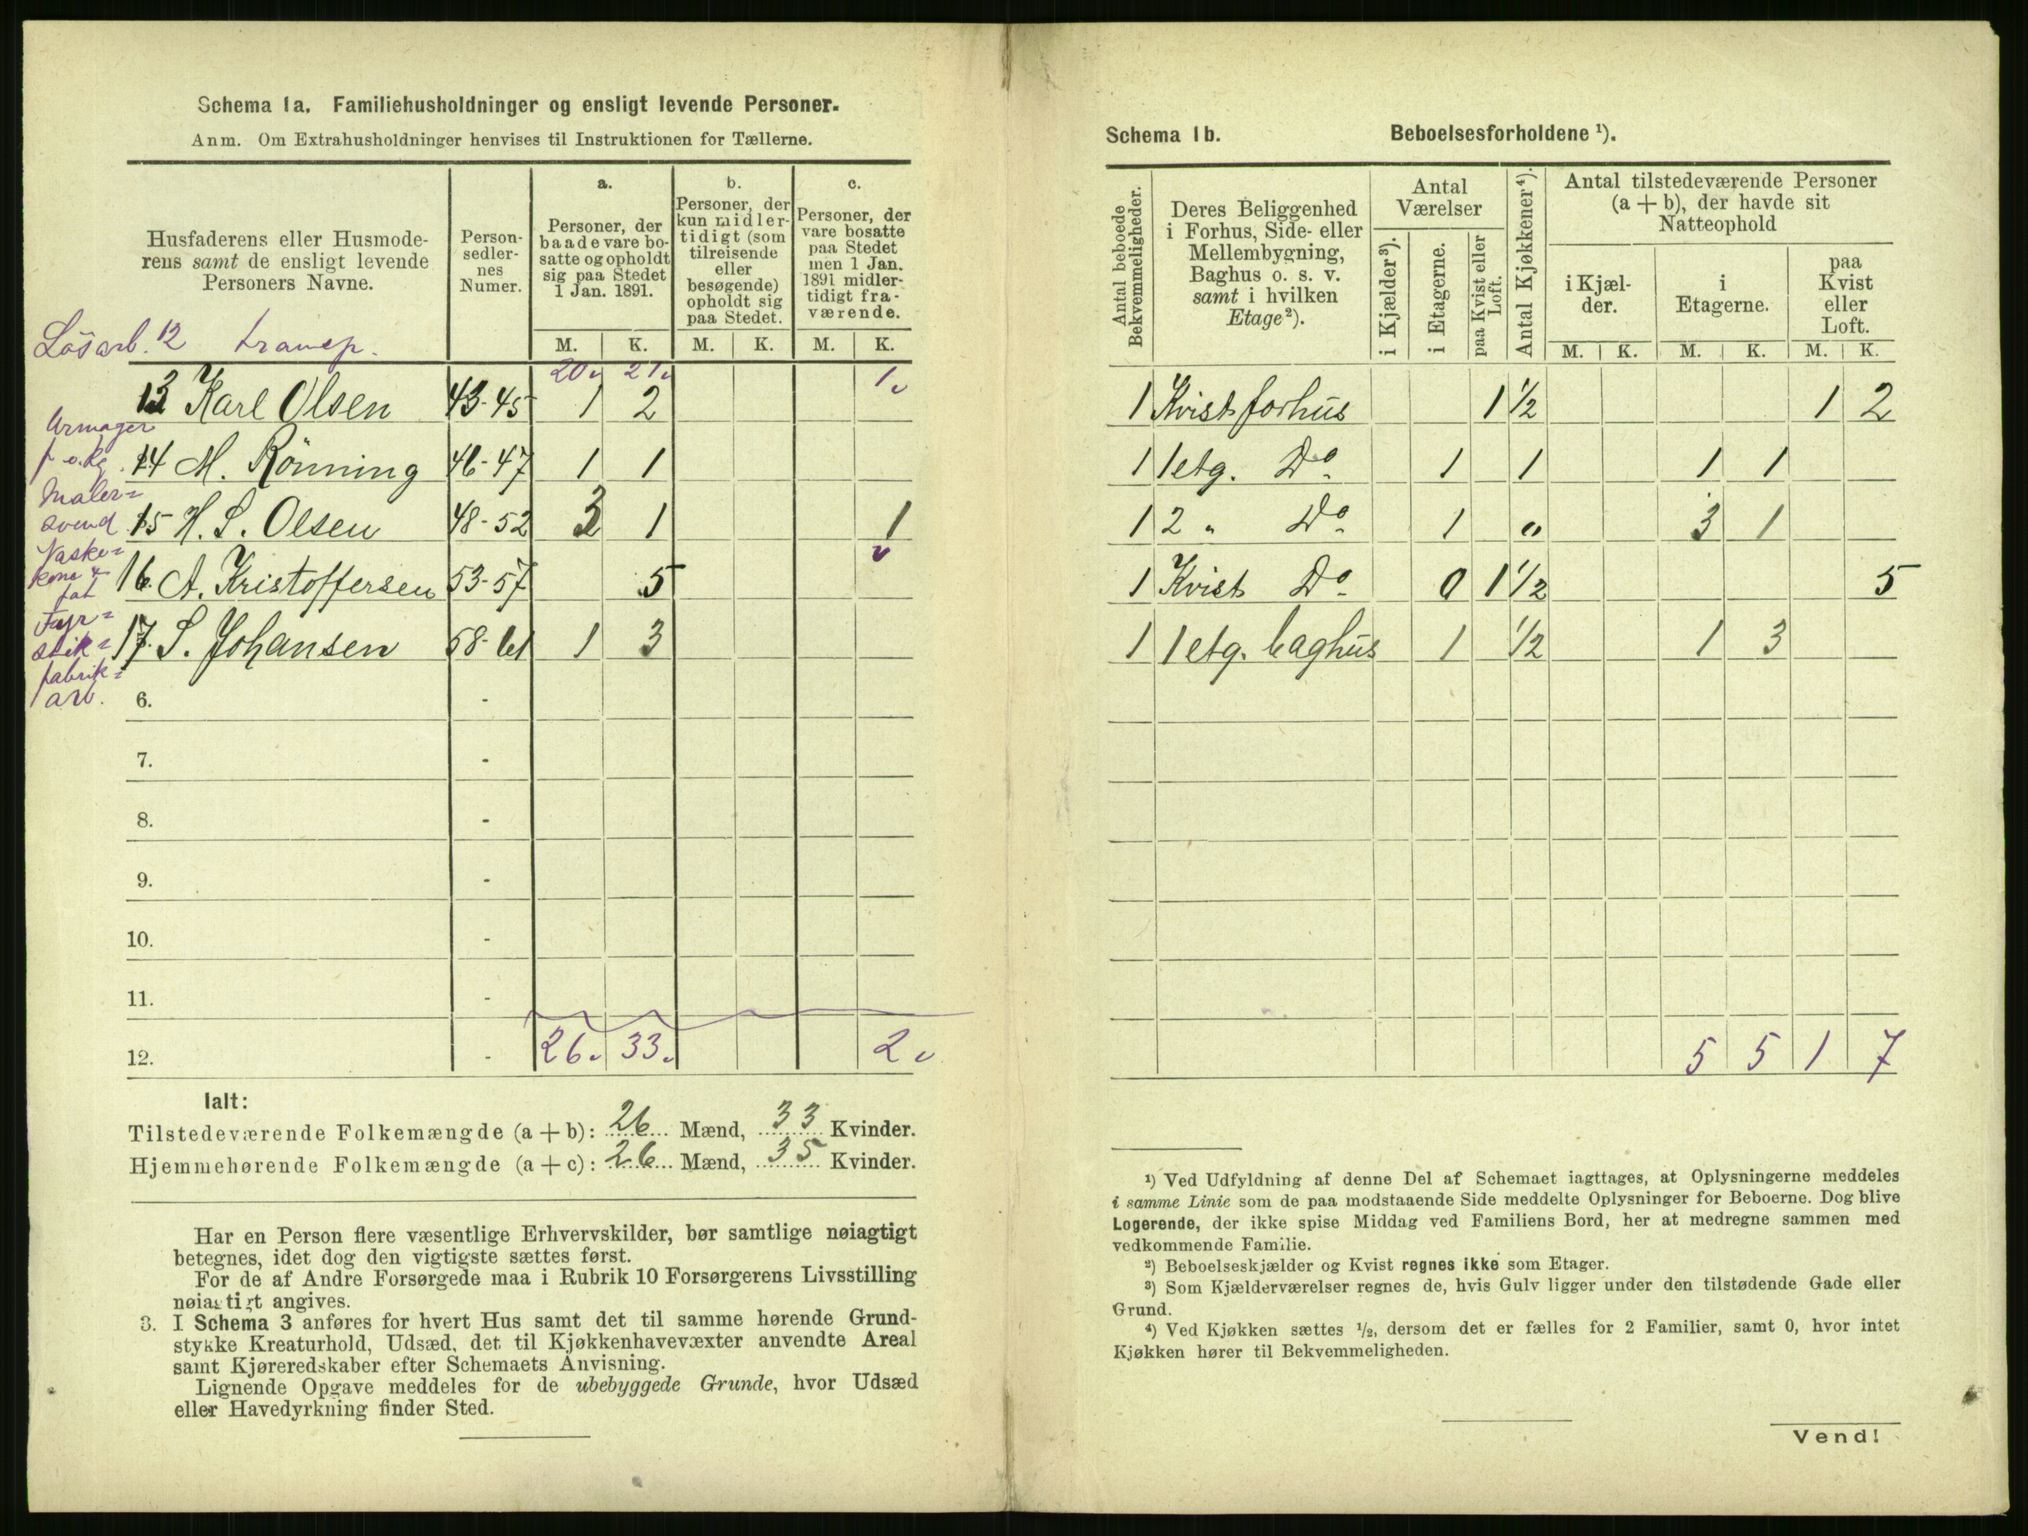 Schema 1a. Familiehusholdninger og ensligt levende Personer.
Anm. Om Extrahusholdninger henvises til Instruktionen for Tællerne.
Husfaderens eller Husmoderens samt de ensligt levende Personers Navne.
Person-sedlernes Numer.
a.
Personer, der baade vare bosatte og opholdt sig paa Stedet 1 Jan. 1891.
b.
Personer, der kun midlertidigt (som tilreisende eller besøgende) opholdt sig paa Stedet.
c.
Personer, der vare bosatte paa Stedet men 1 Jan. 1891 midlertidigt fraværende.
M. K. M. K. M. K.
Lösarb. 12 transp. 20 21 1
13 Karl Olsen 43-45 1 2
Urmager
14 M. Rönning 46-47 1 1
Maler=
svend
15 H. S. Olsen 48-52 3 1 1
Vaske=
kone
16. A. Kristoffersen 53-57 5
Fyr=
stik=
17. S. Johansen 58-61 1 3
fabrik=
arb.
6. -
7. -
8. -
9. -
10. -
11. -
12. - 26 33 2
Ialt:
Tilstedeværende Folkemængde (a + b): 26 Mænd, 33 Kvinder.
Hjemmehørende Folkemængde (a + c): 26 Mænd, 35 Kvinder.
Har en Person flere væsentlige Erhvervskilder, bør samtlige nøiagtigt
betegnes, idet dog den vigtigste sættes først.
For de af Andre Forsørgede maa i Rubrik 10 Forsørgerens Livsstilling
nøiagtigt angives.
3. I Schema 3 anføres for hvert Hus samt det til samme hørende Grund-
stykke Kreaturhold, Udsæd, det til Kjøkkenhavevæxter anvendte Areal
samt Kjøreredskaber efter Schemaets Anvisning.
Lignende Opgave meddeles for de ubebyggede Grunde, hvor Udsæd
eller Havedyrkning finder Sted.
Schema 1b. Beboelsesforholdene ¹).
Antal beboede Bekvemmeligheder.
Deres Beliggenhed i Forhus, Side- eller Mellembygning, Baghus o. s. v. samt i hvilken Etage²).
Antal Værelser
i Kjælder³).
i Etagerne.
paa Kvist eller Loft.
Antal Kjøkkener⁴).
Antal tilstedeværende Personer (a + b), der havde sit Natteophold
i Kjælder.
i Etagerne.
paa Kvist eller Loft.
M. K. M. K. M. K.
1 Kvist forhus 1 1/2 1 2
1 1 etg. Do 1 1 1 1
1 2 " Do 1 " 3 1
1 Kvist Do 0 1 1/2 5
1 1 etg. baghus 1 1/2 1 3
5 5 1 7
¹) Ved Udfyldning af denne Del af Schemaet iagttages, at Oplysningerne meddeles
i samme Linie som de paa modstaaende Side meddelte Oplysninger for Beboerne. Dog blive
Logerende, der ikke spise Middag ved Familiens Bord, her at medregne sammen med
vedkommende Familie.
²) Beboelseskjælder og Kvist regnes ikke som Etager.
³) Som Kjælderværelser regnes de, hvis Gulv ligger under den tilstødende Gade eller
Grund.
⁴) Ved Kjøkken sættes 1/2, dersom det er fælles for 2 Familier, samt 0, hvor intet
Kjøkken hører til Bekvemmeligheden.
Vend!